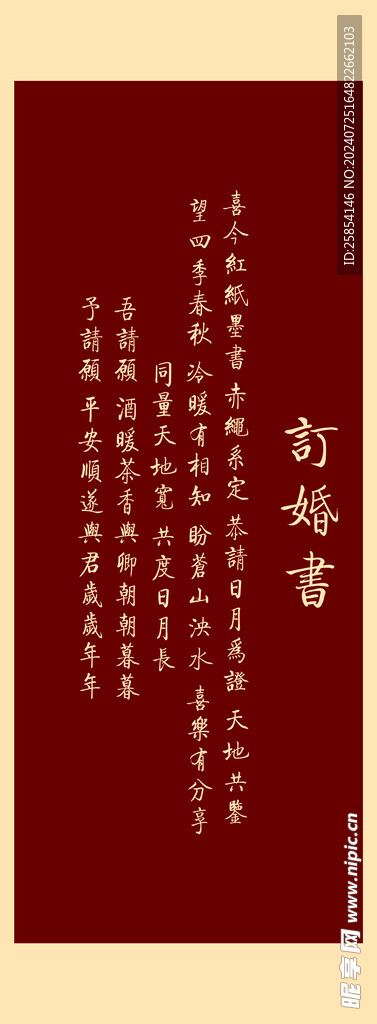 訂婚書
喜今紅紙墨書 赤繩系定 恭請日月為證 天地共鑒
望四季春秋 冷暖有相知 盼蒼山泱水 喜樂有分享
同量天地寬 共度日月長
吾請願 酒暖茶香與卿朝朝暮暮
予請願 平安順遂與君歲歲年年
ID:25854146 NO:20240725164822662103
昵享网 www.nipic.cn